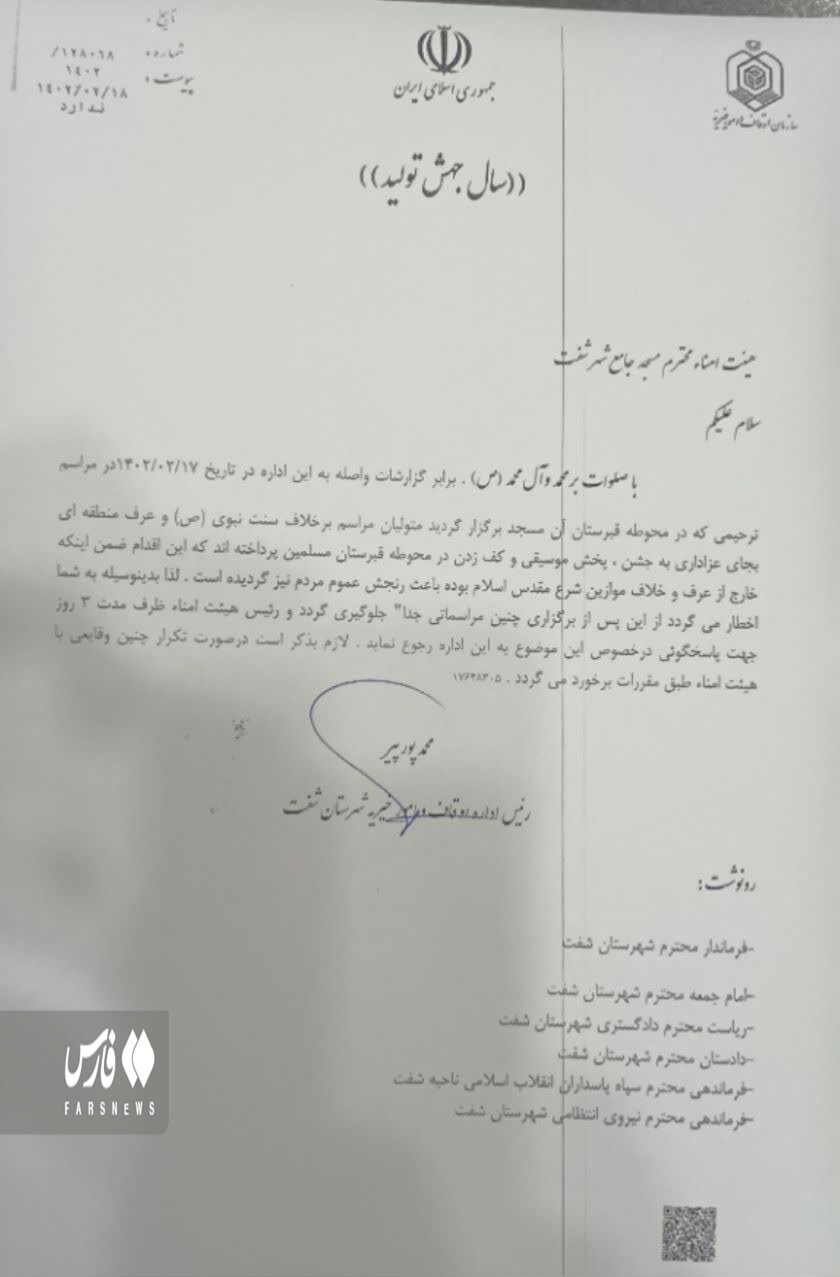 تاریخ :
شماره :
پیوست :
۱۲۸۰۶۸/
۱۴۰۲
۱۴۰۲/۰۲/۱۸
ندارد
جمهوری اسلامی ایران
سازمان اوقاف و امور خیریه
((سال جهش تولید))
هیئت امناء محترم مسجد جامع شهر شفت
سلام علیکم
با صلوات بر محمد وآل محمد (ص) . برابر گزارشات واصله به این اداره در تاریخ ۱۴۰۲/۰۲/۱۷در مراسم
ترحیمی که در محوطه قبرستان آن مسجد برگزار گردید متولیان مراسم برخلاف سنت نبوی (ص) و عرف منطقه ای
بجای عزاداری به جشن ، پخش موسیقی و کف زدن در محوطه قبرستان مسلمین پرداخته اند که این اقدام ضمن اینکه
خارج از عرف و خلاف موازین شرع مقدس اسلام بوده باعث رنجش عموم مردم نیز گردیده است . لذا بدینوسیله به شما
اخطار می گردد از این پس از برگزاری چنین مراسماتی جدا" جلوگیری گردد و رئیس هیئت امناء ظرف مدت ۳ روز
جهت پاسخگوئی درخصوص این موضوع به این اداره رجوع نماید . لازم بذکر است درصورت تکرار چنین وقایعی با
هیئت امناء طبق مقررات برخورد می گردد . ۱۷۶۴۸۳۰۵
محمد پور پیر
رئیس اداره اوقاف و امور خیریه شهرستان شفت
رونوشت :
-فرماندار محترم شهرستان شفت
-امام جمعه محترم شهرستان شفت
-ریاست محترم دادگستری شهرستان شفت
-دادستان محترم شهرستان شفت
-فرماندهی محترم سپاه پاسداران انقلاب اسلامی ناحیه شفت
-فرماندهی محترم نیروی انتظامی شهرستان شفت
فارس
FARSNEWS